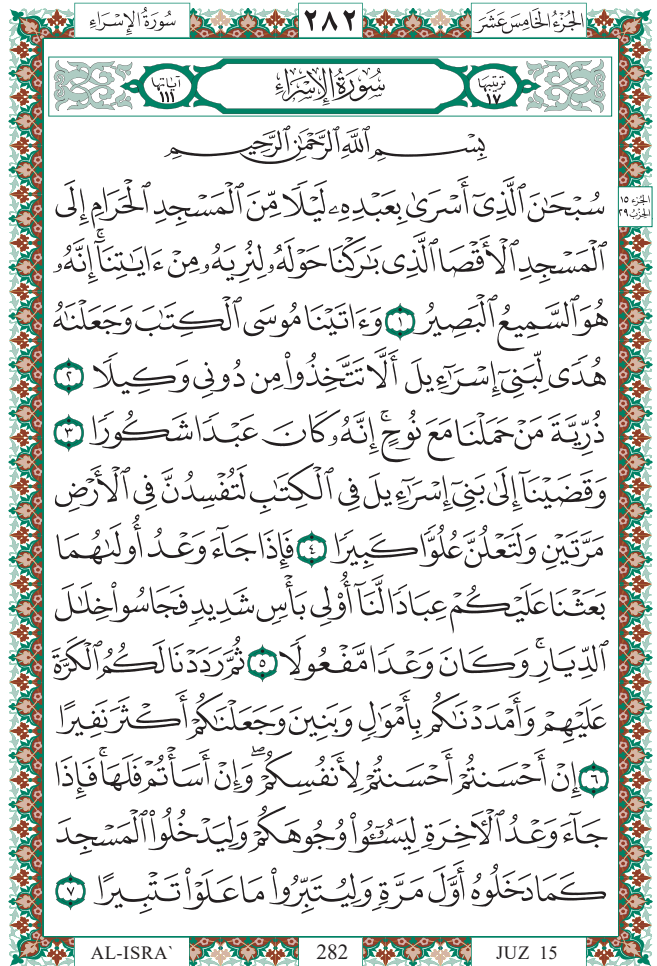 الجُزْءُ الخَامِسَ عَشَرَ ٢٨٢ سُورَةُ الإِسْرَاء
تَرتيبُها ١٧ سُورَةُ الإِسْرَاءِ آيَاتها ١١١
بِسْمِ ٱللَّهِ ٱلرَّحْمَٰنِ ٱلرَّحِيمِ
سُبْحَٰنَ ٱلَّذِيٓ أَسْرَىٰ بِعَبْدِهِۦ لَيْلًا مِّنَ ٱلْمَسْجِدِ ٱلْحَرَامِ إِلَى
الجزء ١٥
الحزب ٢٩
ٱلْمَسْجِدِ ٱلْأَقْصَا ٱلَّذِي بَٰرَكْنَا حَوْلَهُۥ لِنُرِيَهُۥ مِنْ ءَايَٰتِنَآۚ إِنَّهُۥ
هُوَ ٱلسَّمِيعُ ٱلْبَصِيرُ ١ وَءَاتَيْنَا مُوسَى ٱلْكِتَٰبَ وَجَعَلْنَٰهُ
هُدًى لِّبَنِيٓ إِسْرَٰٓءِيلَ أَلَّا تَتَّخِذُوا۟ مِن دُونِي وَكِيلًا ٢
ذُرِّيَّةَ مَنْ حَمَلْنَا مَعَ نُوحٍۚ إِنَّهُۥ كَانَ عَبْدًا شَكُورًا ٣
وَقَضَيْنَآ إِلَىٰ بَنِيٓ إِسْرَٰٓءِيلَ فِي ٱلْكِتَٰبِ لَتُفْسِدُنَّ فِي ٱلْأَرْضِ
مَرَّتَيْنِ وَلَتَعْلُنَّ عُلُوًّا كَبِيرًا ٤ فَإِذَا جَآءَ وَعْدُ أُولَىٰهُمَا
بَعَثْنَا عَلَيْكُمْ عِبَادًا لَّنَآ أُو۟لِي بَأْسٍ شَدِيدٍ فَجَاسُوا۟ خِلَٰلَ
ٱلدِّيَارِۚ وَكَانَ وَعْدًا مَّفْعُولًا ٥ ثُمَّ رَدَدْنَا لَكُمُ ٱلْكَرَّةَ
عَلَيْهِمْ وَأَمْدَدْنَٰكُم بِأَمْوَٰلٍ وَبَنِينَ وَجَعَلْنَٰكُمْ أَكْثَرَ نَفِيرًا
٦ إِنْ أَحْسَنتُمْ أَحْسَنتُمْ لِأَنفُسِكُمْۖ وَإِنْ أَسَأْتُمْ فَلَهَاۚ فَإِذَا
جَآءَ وَعْدُ ٱلْءَاخِرَةِ لِيَسُۥٓـُٔوا۟ وُجُوهَكُمْ وَلِيَدْخُلُوا۟ ٱلْمَسْجِدَ
كَمَا دَخَلُوهُ أَوَّلَ مَرَّةٍ وَلِيُتَبِّرُوا۟ مَا عَلَوْا۟ تَتْبِيرًا ٧
AL-ISRA` 282 JUZ 15